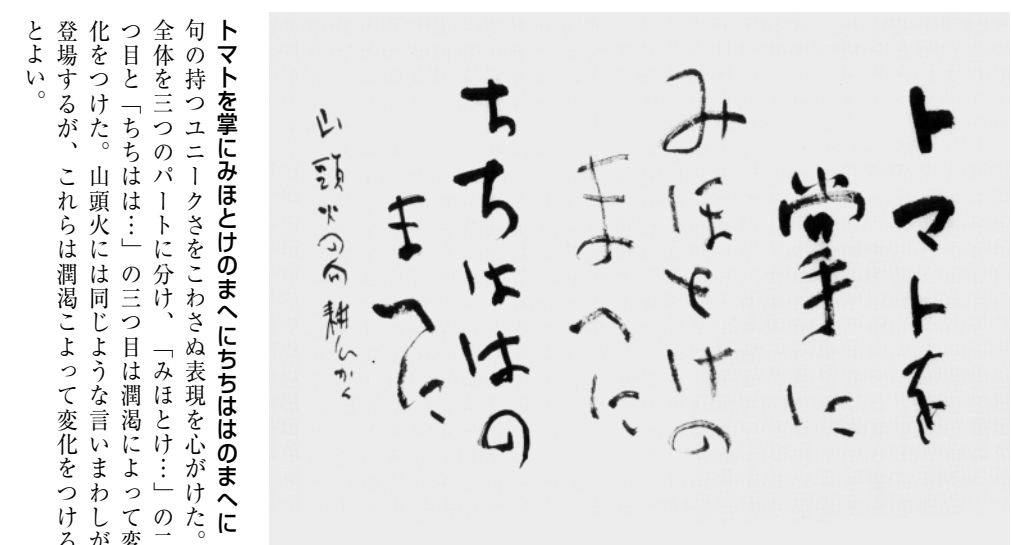 トマトを
掌に
みほとけの
まへに
ちちははの
まへに
山頭火の句
トマトを掌にみほとけのまへ にちちははのまへに
句の持つユニークさをこわさぬ表現を心がけた。
全体を三つのパートに分け、「みほとけ…」の二
つ目と「ちちはは…」の三つ目は潤渇によって変
化をつけた。山頭火には同じような言いまわしが
登場するが、これらは潤渇こよって変化をつける
とよい。